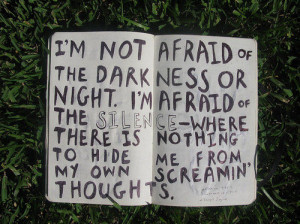 I'M NOT AFRAID OF
THE DARKNESS OR
NIGHT. I'M AFRAID OF
THE SILENCE—WHERE
THERE IS NOTHING
TO HIDE ME FROM
MY OWN SCREAMIN'
THOUGHTS.